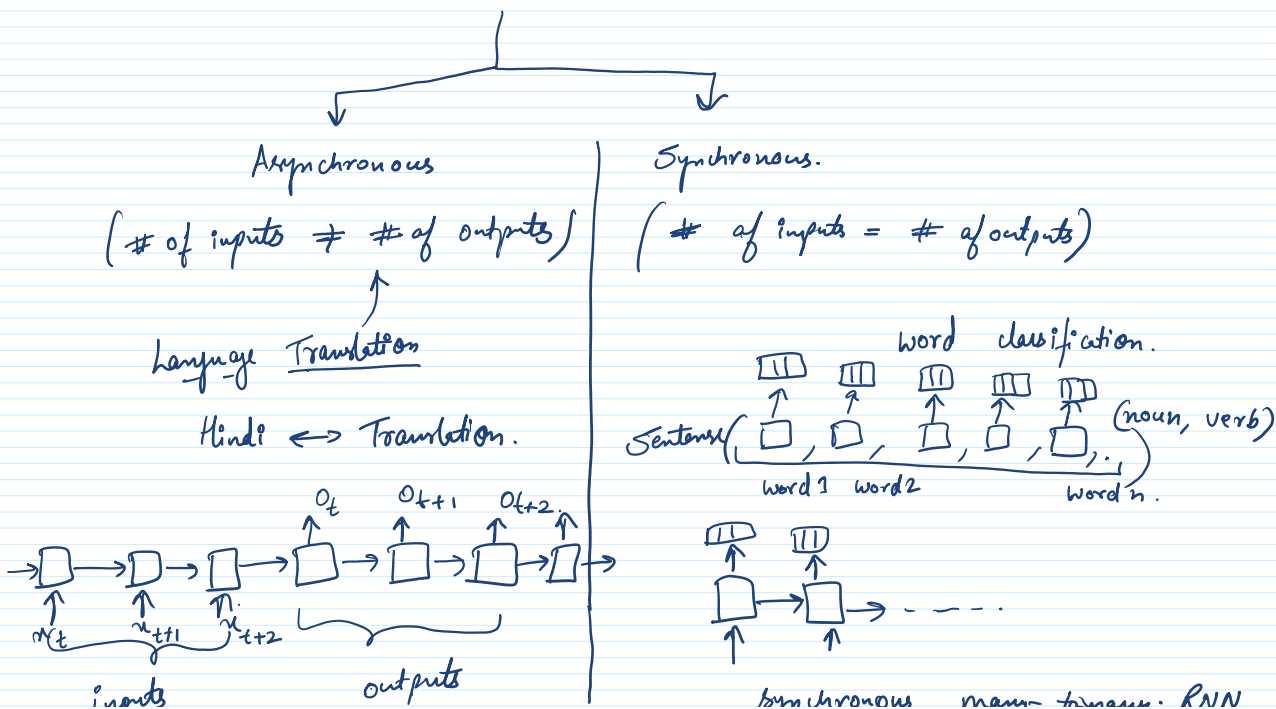 Asynchronous
(# of inputs ≠ # of outputs)
Language Translation
Hindi ↔ Translation.
O_t O_t+1 O_t+2
x_t x_t+1 x_t+2
inputs
outputs
Synchronous.
(# of inputs = # of outputs)
word classification.
(noun, verb)
Sentense ( , , , , , . )
word 1 word 2 word n.
synchronous many-to many. RNN